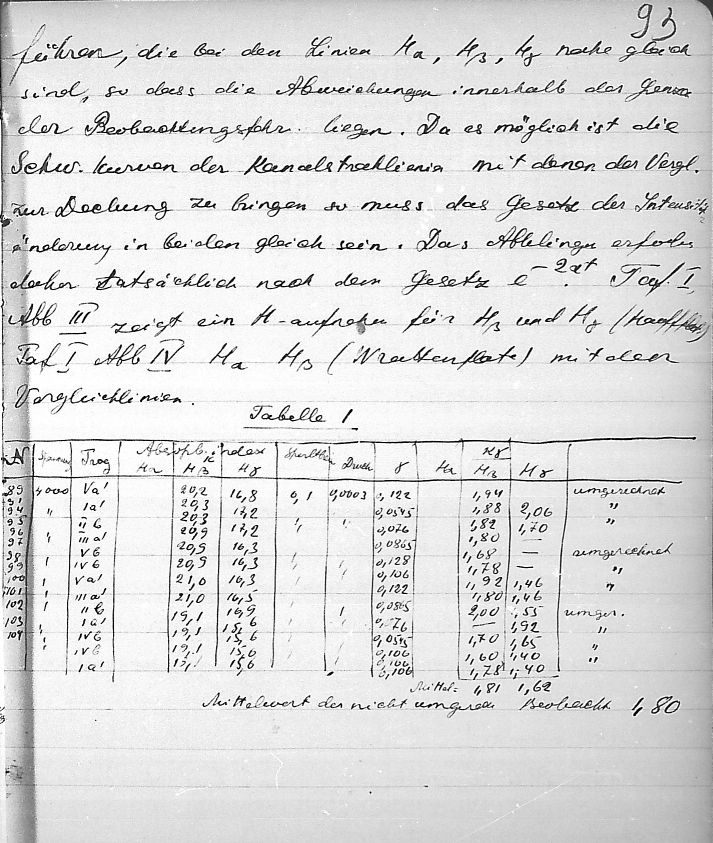 93
führen, die bei den Linien Hα, Hβ, Hγ nahe gleich
sind, so dass die Abweichungen innerhalb der
der Beobachtungsfehr. liegen. Da es möglich ist die
Schw. kurven der Kanalstrahllinien mit denen der Vergl.
zur Deckung zu bringen so muss das Gesetz der Intensität
änderung in beiden gleich sein. Das Abklingen erfolgt
daher tatsächlich nach dem Gesetz e^-2αt. Taf. I,
Abb III zeigt ein H-aufnahm für Hβ und Hγ
Taf I Abb IV Hα Hβ (Wrattenplate) mit den
Vergleichlinien.
Tabelle 1
N Spannung Trog Absorb. index Hα Hβ Hγ Druck γ Hα Hβ Hγ
89 4000 Va' 20,2 16,8 0,1 0,0003 0,122 1,94 umgerechnet
91 " Ia' 20,3 17,2 0,0545 1,88 2,06 "
94 IIb 20,3 17,2 0,076 1,82 1,70
95 " IIIa' 20,9 16,3 0,0865 1,80 —
96 Vb 20,9 16,3 0,128 1,68 — umgerechnet
97 IVb 20,9 16,3 0,106 1,78 — "
98 Va' 21,0 16,3 0,122 1,92 1,46 "
99 IIIa' 21,0 16,5 0,0865 1,80 1,46
100 IIb 19,1 16,9 0,076 2,00 1,55 umger.
101 Ia' 19,1 15,6 0,0545 — 1,92 "
102 IVb 19,1 15,6 0,106 1,70 1,65 "
103 IVb 19,1 15,6 0,106 1,60 1,40 "
104 Ia' 19,1 15,6 0,106 1,78 1,40
Mittel= 1,81 1,62
Mittelwert der nicht umgerech Beobacht 1,80